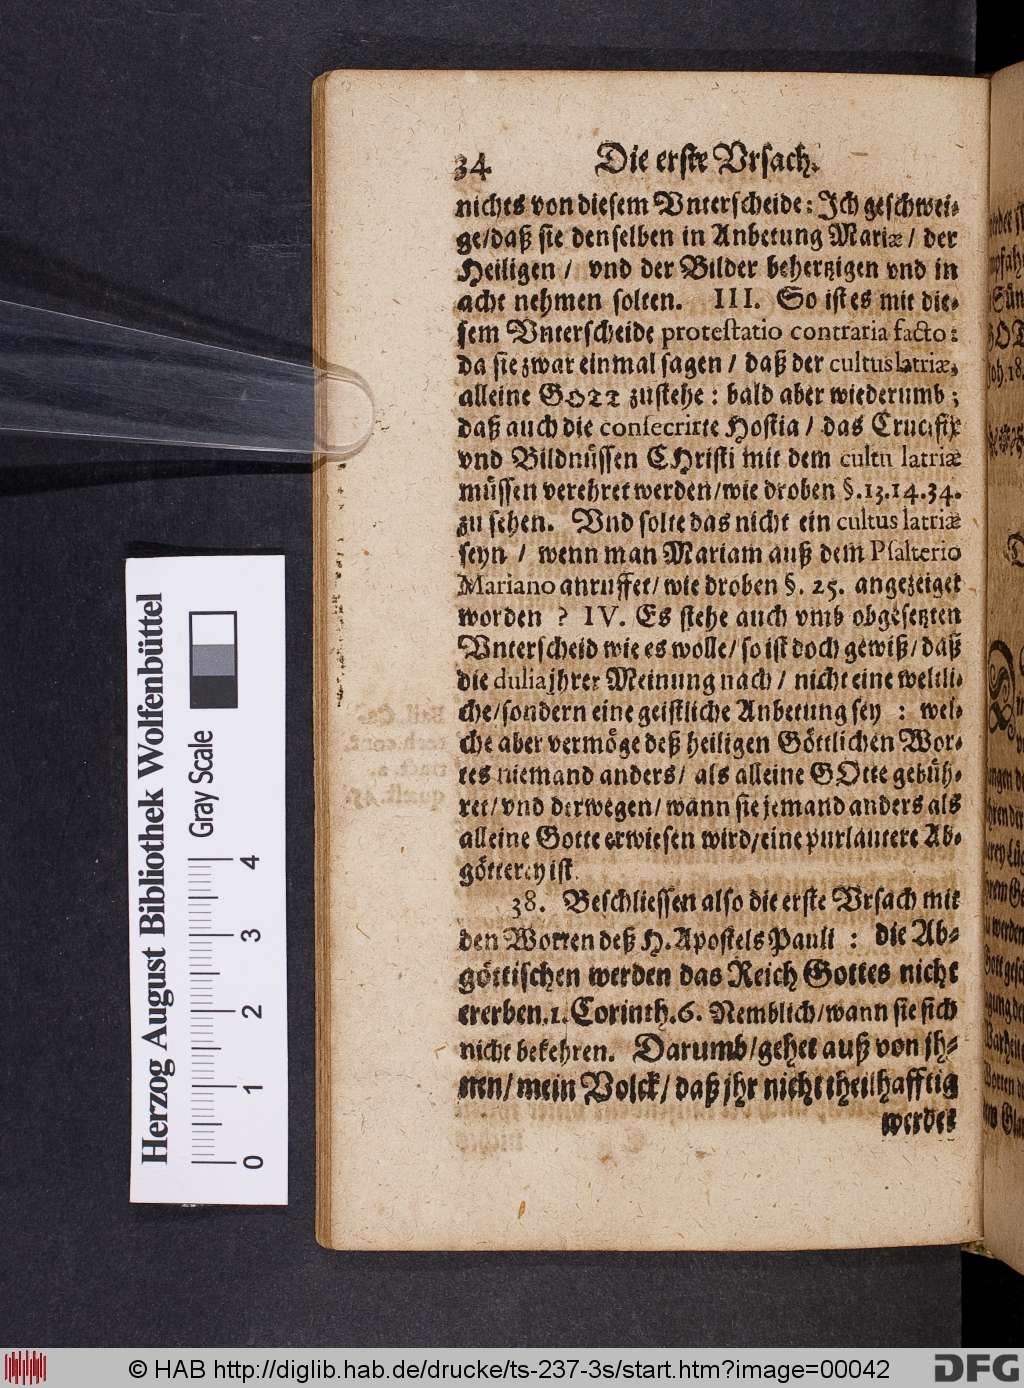 34 Die erste Vrsach.
nichts von diesem Vnterscheide: Ich geschwei-
ge/daß sie denselben in Anbetung Mariæ/ der
Heiligen / vnd der Bilder behertzigen vnd in
acht nehmen solten. III. So ist es mit die-
sem Vnterscheide protestatio contraria facto:
da sie zwar einmal sagen / daß der cultus latriæ,
alleine GOTT zustehe: bald aber wiederumb;
daß auch die consecrirte Hostia / das Crucifix
vnd Bildnüssen CHristi mit dem cultu latriæ
müssen verehret werden/wie droben §.13.14.34.
zu sehen. Vnd solte das nicht ein cultus latriæ
seyn / wenn man Mariam auß dem Psalterio
Mariano anruffet/ wie droben §. 25. angezeiget
worden ? IV. Es stehe auch vmb obgesetzten
Vnterscheid wie es wolle/ so ist doch gewiß/ daß
die dulia jhrer Meinung nach / nicht eine weltli-
che/sondern eine geistliche Anbetung sey : wel-
che aber vermöge deß heiligen Göttlichen Wor-
tes niemand anders/ als alleine GOtte gebüh-
ret/ vnd derwegen/ wann sie jemand anders als
alleine Gotte erwiesen wird/eine purlautere Ab-
götterey ist.
38. Beschliessen also die erste Vrsach mit
den Worten deß H. Apostels Pauli : die Ab-
göttischen werden das Reich Gottes nicht
ererben. 1. Corinth. 6. Nemblich/wann sie sich
nicht bekehren. Darumb/gehet auß von jh-
nen/ mein Volck/ daß jhr nicht theilhafftig
werdet
Herzog August Bibliothek Wolfenbüttel
Gray Scale
0 1 2 3 4
© HAB http://diglib.hab.de/drucke/ts-237-3s/start.htm?image=00042
DFG